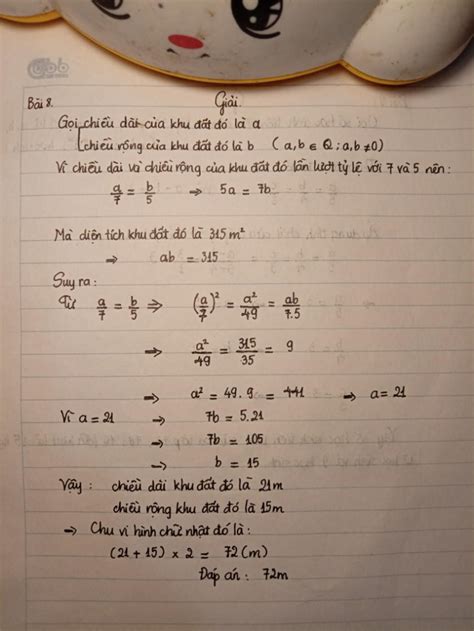 Bài 8.
Giải.
Gọi chiều dài của khu đất đó là a
chiều rộng của khu đất đó là b ( a, b ∈ Q ; a, b ≠ 0 )
Vì chiều dài và chiều rộng của khu đất đó lần lượt tỷ lệ với 7 và 5 nên:
a/7 = b/5 ⇒ 5a = 7b
Mà diện tích khu đất đó là 315 m²
⇒ ab = 315
Suy ra:
Từ a/7 = b/5 ⇒ (a/7)² = a²/49 = ab/7.5
⇒ a²/49 = 315/35 = 9
⇒ a² = 49.9 = 441 ⇒ a = 21
Vì a = 21 ⇒ 7b = 5.21
⇒ 7b = 105
⇒ b = 15
Vậy : chiều dài khu đất đó là 21m
chiều rộng khu đất đó là 15m
⇒ Chu vi hình chữ nhật đó là :
(21 + 15) × 2 = 72 (m)
Đáp án : 72m